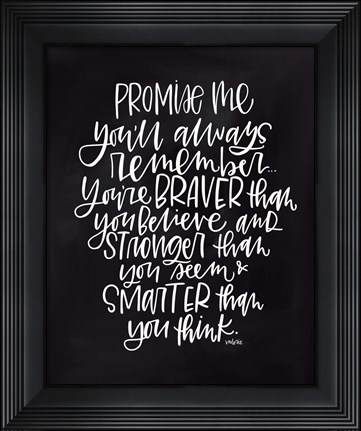 PROMISE ME
you'll always
remember...
You're BRAVER than
you believe and
STRONGER than
you seem &
SMARTER than
you think.
valerie